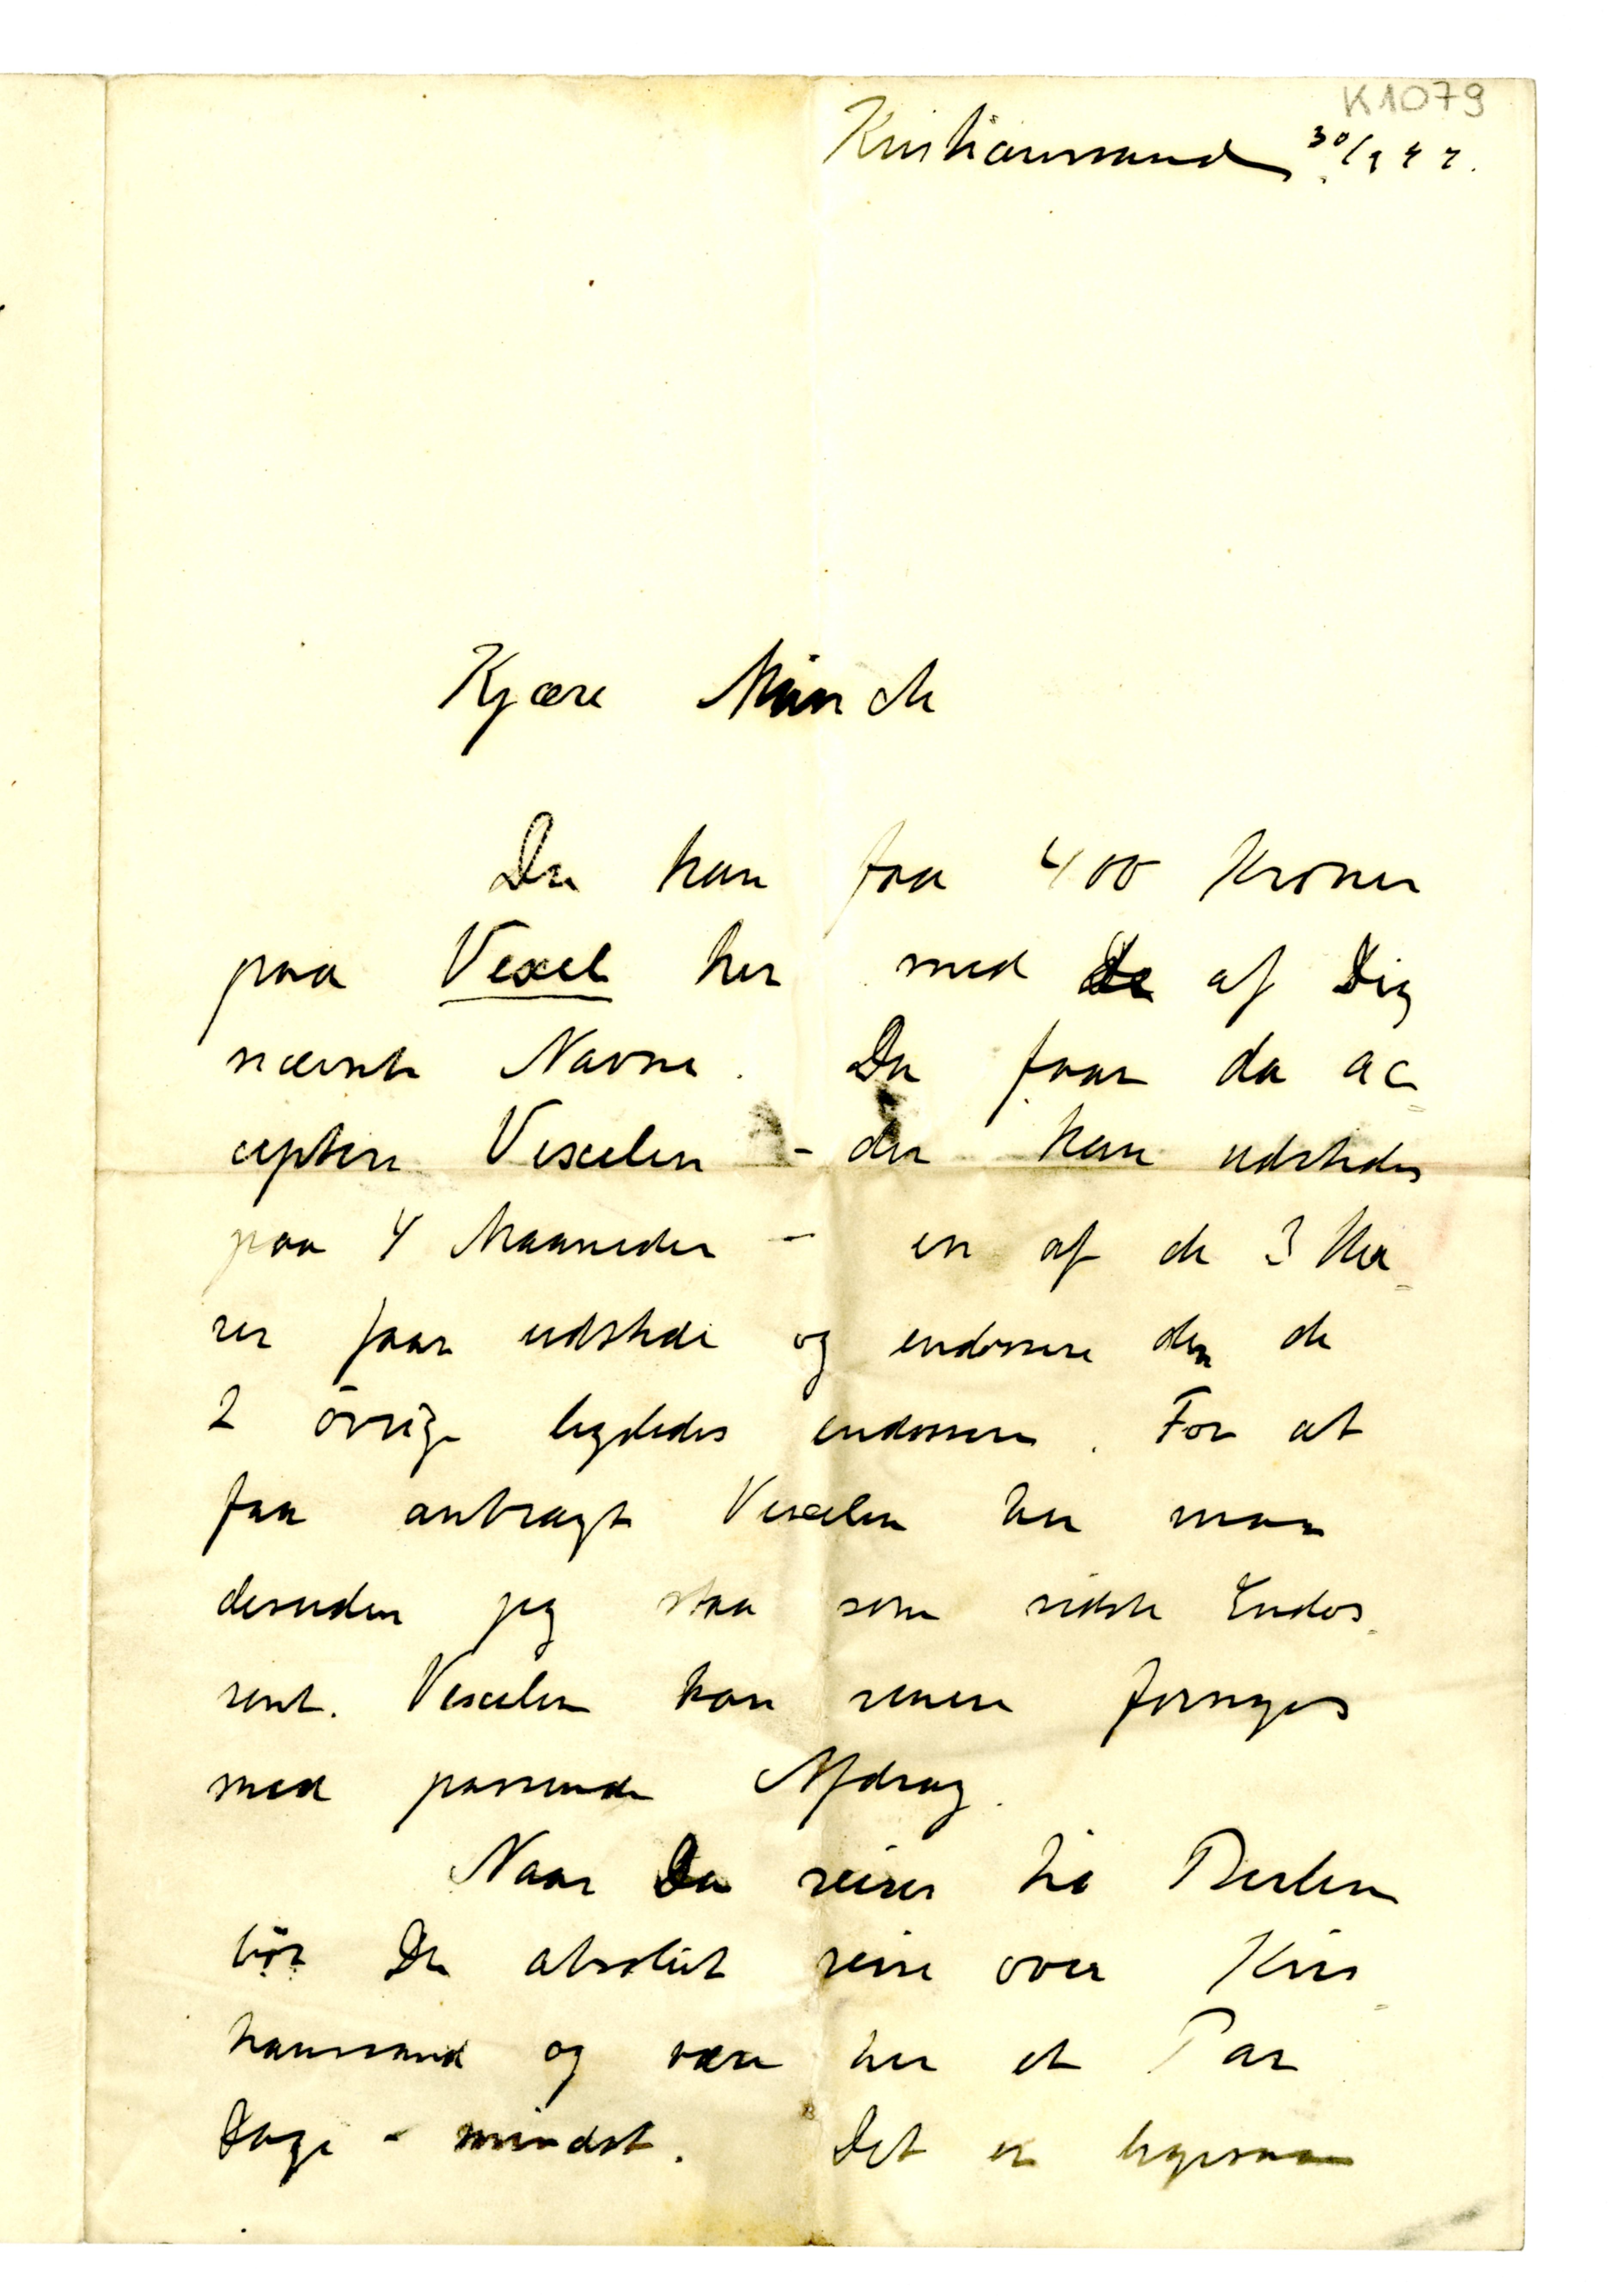 K1079
Kristianssand 30/9
Kjære Munch
Du kan faa 400 Kroner
paa Vexel her med De af Dig
nævnte Navne. Du faar da ac=
ceptere Vexelen - der kan udstedes
paa 4 Maaneder - en af de 3 Her=
rer faar udstede og endossere den de
2 övrige ligeledes endossere. For at
faa anbragt Vexelen her maa
desuden jeg staa som sidste Endos=
sent. Vexelen kan senere fornyes
med passende Afdrag.
Naar Du reiser til Berlin
bör Du absolut reise over Kris=
tianssand og være her et Par
Dage - mindst. Det er ligesaa